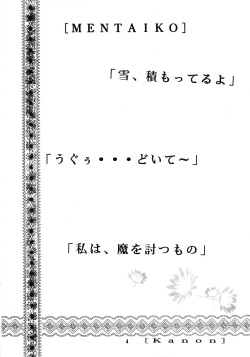 [MENTAIKO]
「雪、積もってるよ」
「うぐぅ・・・どいて～」
「私は、魔を討つもの」
4 [Kanon]